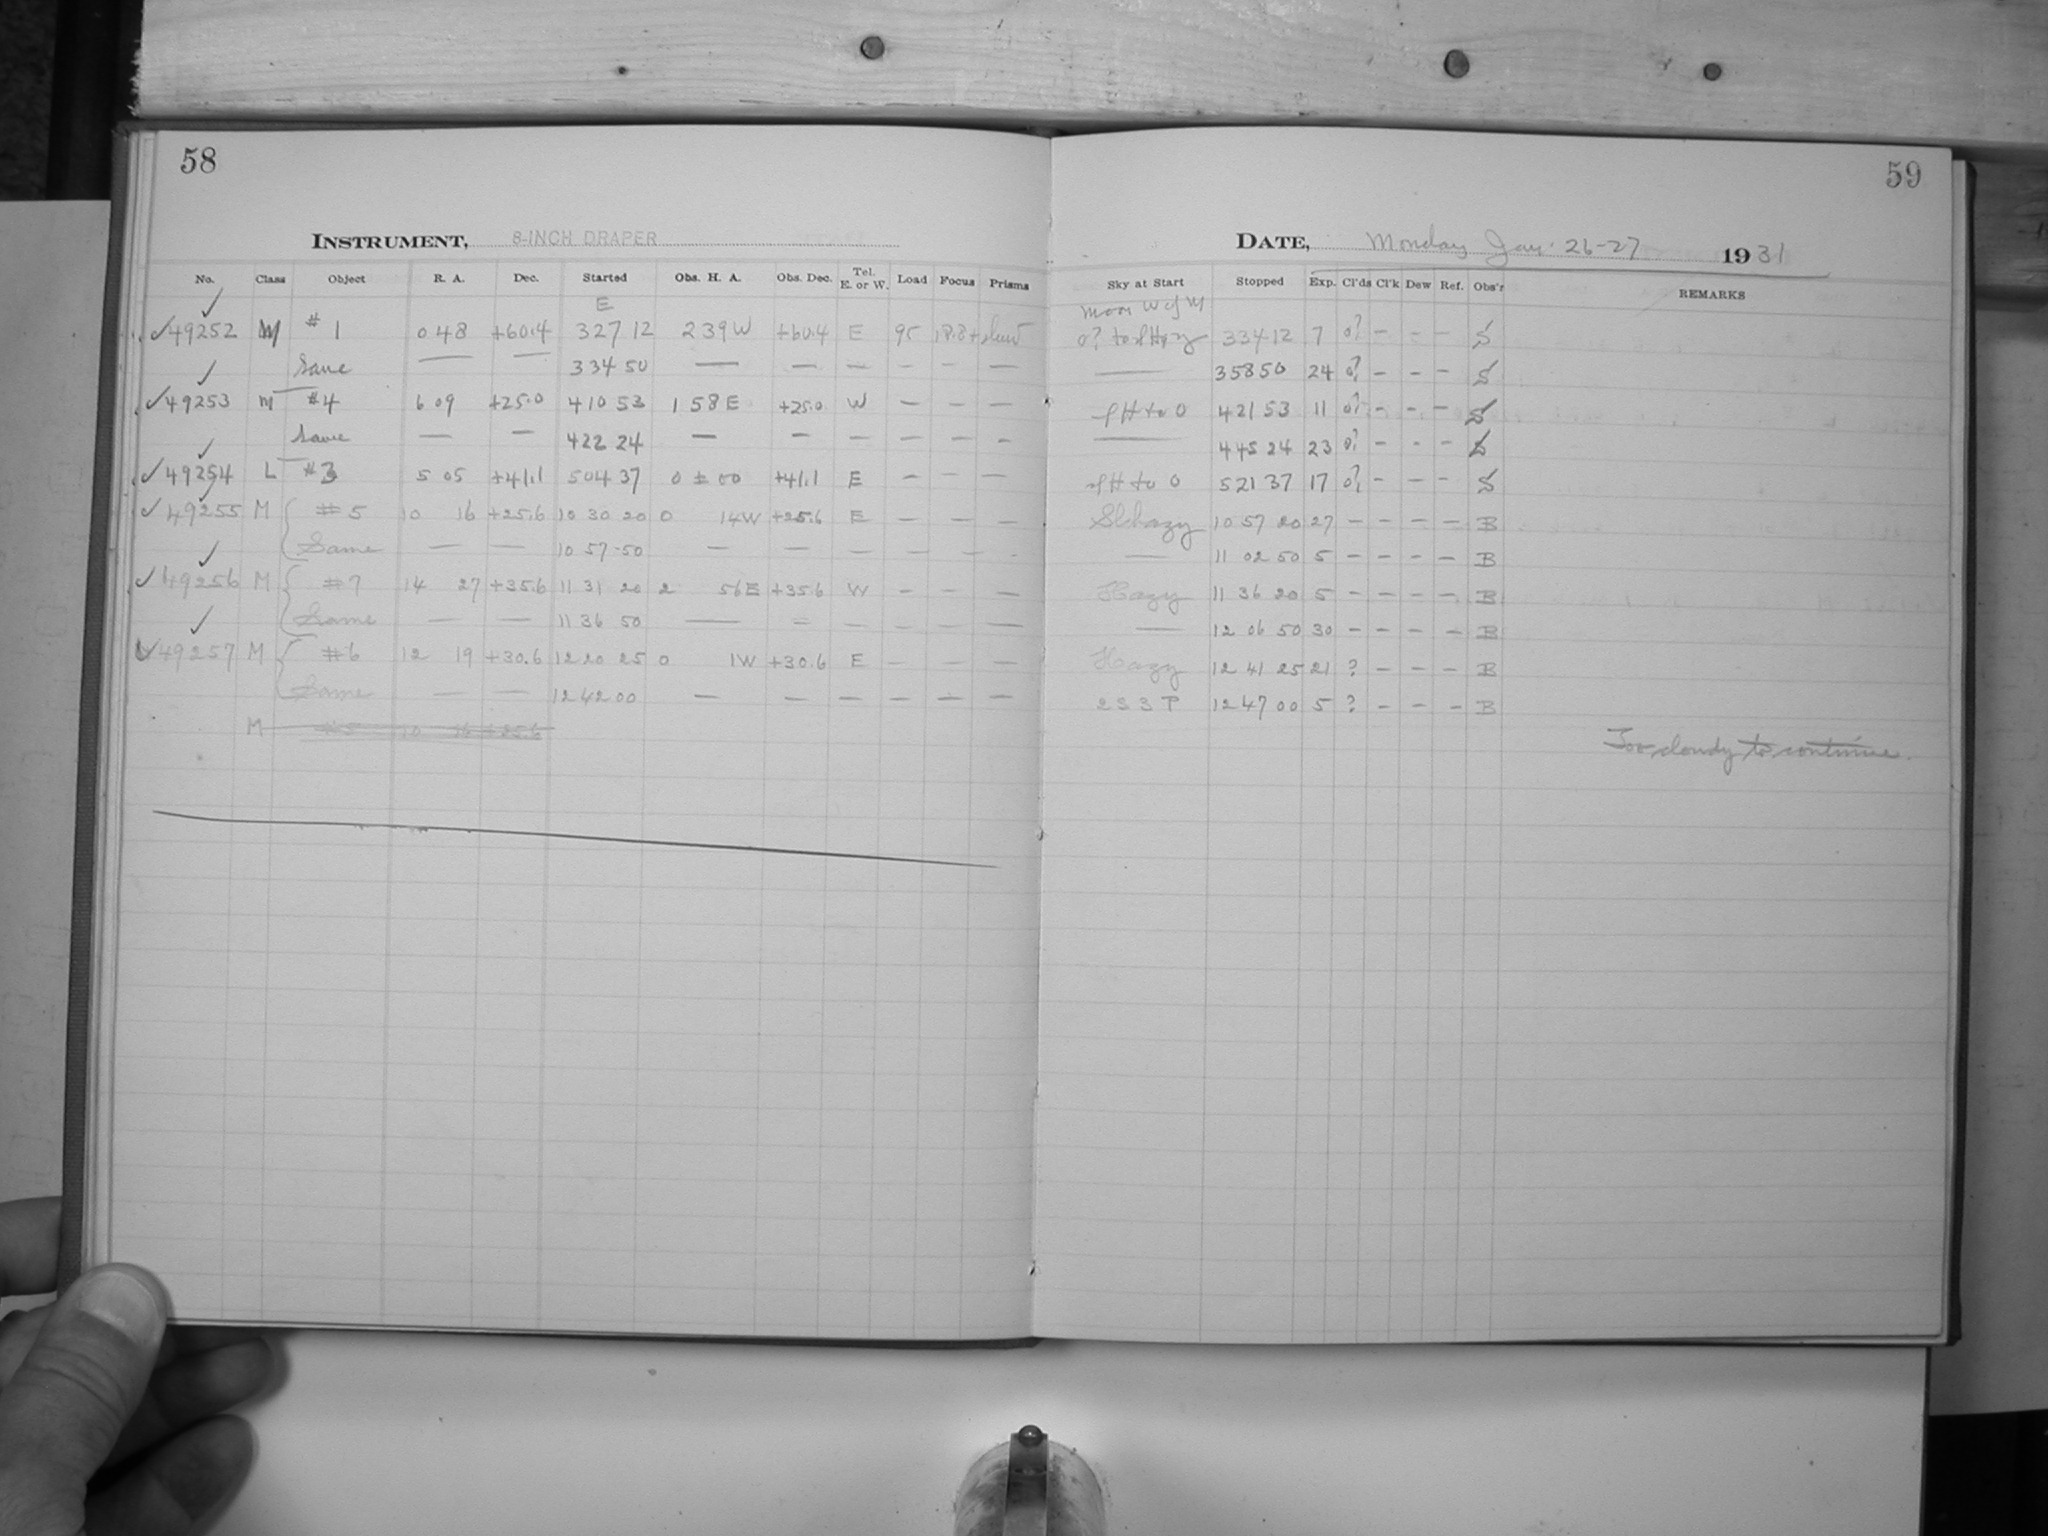 58
INSTRUMENT, 8-INCH DRAPER
No. Class Object R. A. Dec. Started Obs. H. A. Obs. Dec. Tel. E. or W. Load Focus Prisms
E
49252 M #1 0 48 +60.4 3 27 12 2 39 W +60.4 E 95 18.8+
Same — — 3 34 50 — — — — — —
49253 M #4 6 09 +25.0 4 10 53 1 58 E +25.0 W — — —
Same — — 4 22 24 — — — — — —
49254 L #3 5 05 +41.1 5 04 37 0 ± 00 +41.1 E — — —
49255 M #5 10 16 +25.6 10 30 20 0 14W +25.6 E — — —
Same — — 10 57 50 — — — — — —
49256 M #7 14 27 +35.6 11 31 20 2 56E +35.6 W — — —
Same — — 11 36 50 — — — — — —
49257 M #6 12 19 +30.6 12 20 25 0 1W +30.6 E — — —
Same — — 12 42 00 — — — — — —
M #5 10 16 +25.6
59
DATE, Monday Jan. 26-27 1931
Sky at Start Stopped Exp. Cl'ds Cl'k Dew Ref. Obs'r REMARKS
Moon W of M
0? to slHazy 3 34 12 7 0? — — — S
— 3 58 50 24 0? — — — S
slH to 0 4 21 53 11 0? — — — S
— 4 45 24 23 0? — — — S
slH to 0 5 21 37 17 0? — — — S
Sl hazy 10 57 20 27 — — — — B
— 11 02 50 5 — — — — B
Hazy 11 36 20 5 — — — — B
— 12 06 50 30 — — — — B
Hazy 12 41 25 21 ? — — — B
2S3P 12 47 00 5 ? — — — B
Too cloudy to continue.